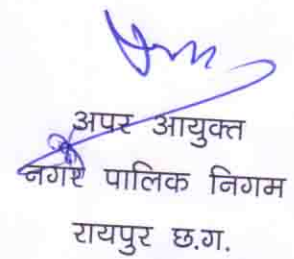 अपर आयुक्त
नगर पालिक निगम
रायपुर छ.ग.